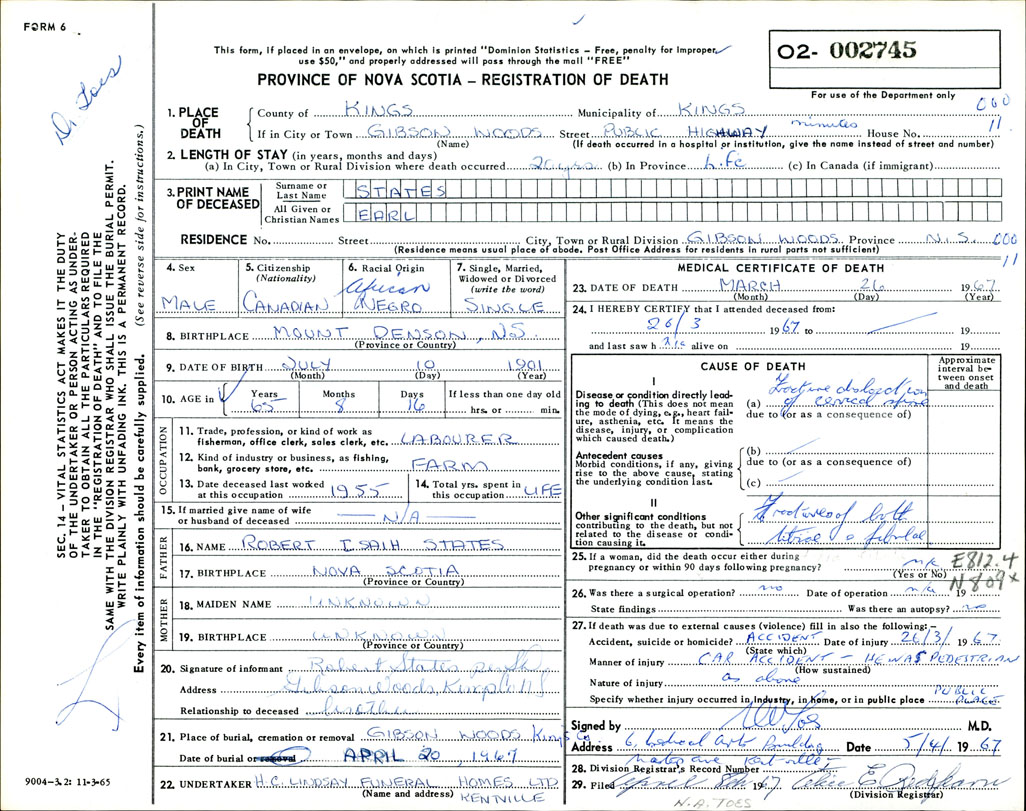 FORM 6
This form, if placed in an envelope, on which is printed "Dominion Statistics – Free, penalty for Improper
use $50," and properly addressed will pass through the mail "FREE"
PROVINCE OF NOVA SCOTIA – REGISTRATION OF DEATH
02- 002745
For use of the Department only
000
11
Dr. Toes
SEC. 14 – VITAL STATISTICS ACT MAKES IT THE DUTY
OF THE UNDERTAKER OR PERSON ACTING AS UNDER-
TAKER TO OBTAIN ALL THE PARTICULARS REQUIRED
IN THE "REGISTRATION OF DEATH" AND TO FILE THE
SAME WITH THE DIVISION REGISTRAR WHO SHALL ISSUE THE BURIAL PERMIT.
WRITE PLAINLY WITH UNFADING INK. THIS IS A PERMANENT RECORD.
Every item of information should be carefully supplied. (See reverse side for instructions.)
1. PLACE OF DEATH
County of KINGS Municipality of KINGS
minutes
If in City or Town GIBSON WOODS Street PUBLIC HIGHWAY House No.
(Name) (If death occurred in a hospital or institution, give the name instead of street and number)
2. LENGTH OF STAY (in years, months and days)
(a) In City, Town or Rural Division where death occurred 20 yrs. (b) In Province Life (c) In Canada (if immigrant)
3. PRINT NAME OF DECEASED
Surname or Last Name STATES
All Given or Christian Names EARL
RESIDENCE No. Street City, Town or Rural Division GIBSON WOODS Province N.S. 000
11
(Residence means usual place of abode. Post Office Address for residents in rural parts not sufficient)
4. Sex
MALE
5. Citizenship (Nationality)
CANADIAN
6. Racial Origin
African
NEGRO
7. Single, Married, Widowed or Divorced (write the word)
SINGLE
8. BIRTHPLACE MOUNT DENSON, N.S.
(Province or Country)
9. DATE OF BIRTH JULY 10 1901
(Month) (Day) (Year)
10. AGE in Years 65 Months 8 Days 16 If less than one day old hrs. or min.
OCCUPATION
11. Trade, profession, or kind of work as fisherman, office clerk, sales clerk, etc. LABOURER
12. Kind of industry or business, as fishing, bank, grocery store, etc. FARM
13. Date deceased last worked at this occupation 1955
14. Total yrs. spent in this occupation LIFE
15. If married give name of wife or husband of deceased N/A
FATHER
16. NAME ROBERT ISAIH STATES
17. BIRTHPLACE NOVA SCOTIA
(Province or Country)
MOTHER
18. MAIDEN NAME UNKNOWN
19. BIRTHPLACE UNKNOWN
(Province or Country)
20. Signature of informant Robert States
Address Gibson Woods, Kings Co N S
Relationship to deceased brother
21. Place of burial, cremation or removal GIBSON WOODS Kings Co
Date of burial or removal APRIL 20, 1967
22. UNDERTAKER H.C. LINDSAY FUNERAL HOMES LTD
(Name and address) KENTVILLE
9004–3.2: 11-3-65
MEDICAL CERTIFICATE OF DEATH
23. DATE OF DEATH MARCH 26 1967
(Month) (Day) (Year)
24. I HEREBY CERTIFY that I attended deceased from:
26/3 1967 to 19
and last saw h alive on 19
CAUSE OF DEATH
Approximate interval between onset and death
I
Disease or condition directly leading to death (This does not mean the mode of dying, e.g., heart failure, asthenia, etc. It means the disease, injury, or complication which caused death.)
(a) Fracture dislocation of cervical spine
due to (or as a consequence of)
Antecedent causes
Morbid conditions, if any, giving rise to the above cause, stating the underlying condition last.
(b)
due to (or as a consequence of)
(c)
II
Other significant conditions contributing to the death, but not related to the disease or condition causing it.
Fractures of both tibiae & fibulae
25. If a woman, did the death occur either during pregnancy or within 90 days following pregnancy? n/a
(Yes or No)
E812.4
N809x
26. Was there a surgical operation? no Date of operation n/a 19
State findings Was there an autopsy? no
27. If death was due to external causes (violence) fill in also the following:–
Accident, suicide or homicide? ACCIDENT Date of injury 26/3/ 1967
(State which)
Manner of injury CAR ACCIDENT – HE WAS PEDESTRIAN
(How sustained)
Nature of injury as above
Specify whether injury occurred in Industry, in home, or in public place PUBLIC PLACE
Signed by M.D.
Address Date 5/4/ 1967
28. Division Registrar's Record Number
29. Filed 1967
(Division Registrar)
N.A. TOES